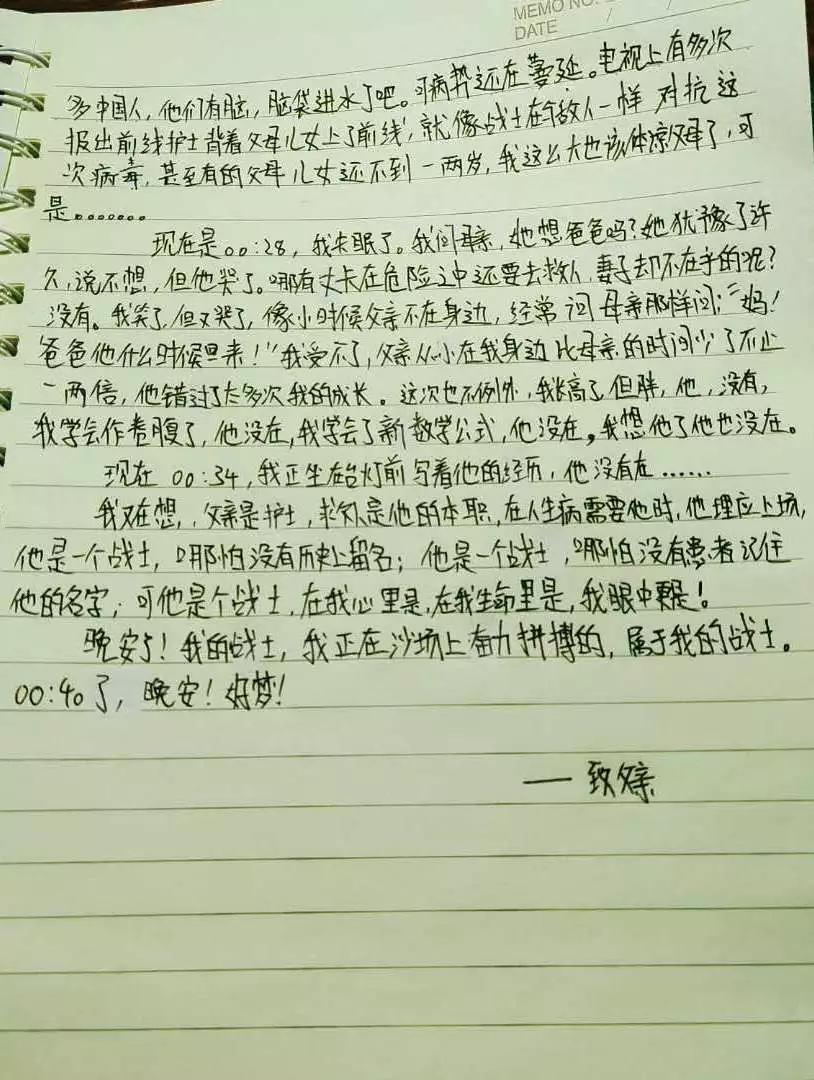 MEMO NO.
DATE / /
多中国人，他们有脑，脑袋进水了吧。可病势还在蔓延。电视上有多次
报出前线护士背着父母儿女上了前线，就像战士在和敌人一样 对抗这
次病毒，甚至有的父母儿女还不到一两岁，我这么大也该体谅父母了，可
是.......
现在是00:28，我失眠了。我问母亲，她想爸爸吗？她犹豫了许
久，说不想，但他哭了。哪有丈夫在危险之中还要去救人，妻子却不在乎的呢？
没有。我笑了，但又哭了，像小时候父亲不在身边，经常问母亲那样问：“妈！
爸爸他什么时候回来！”我受不了，父亲从小在我身边比母亲的时间少了不止
一两倍，他错过了太多次我的成长。这次也不例外，我长高了，但胖，他，没有，
我学会作卷腹了，他没在，我学会了新数学公式，他没在。我想他了他也没在。
现在 00:34，我正坐在台灯前写着他的经历，他没有在......
我又在想，父亲是护士，救人是他的本职，在人生病需要他时，他理应上场，
他是一个战士，哪怕没有历史上留名；他是一个战士，哪怕没有患者记住
他的名字，可他是个战士，在我心里是，在我生命里是，我眼中更是！
晚安了！我的战士，我正在沙场上奋力拼搏的，属于我的战士。
00:40了，晚安！好梦！
——致父亲